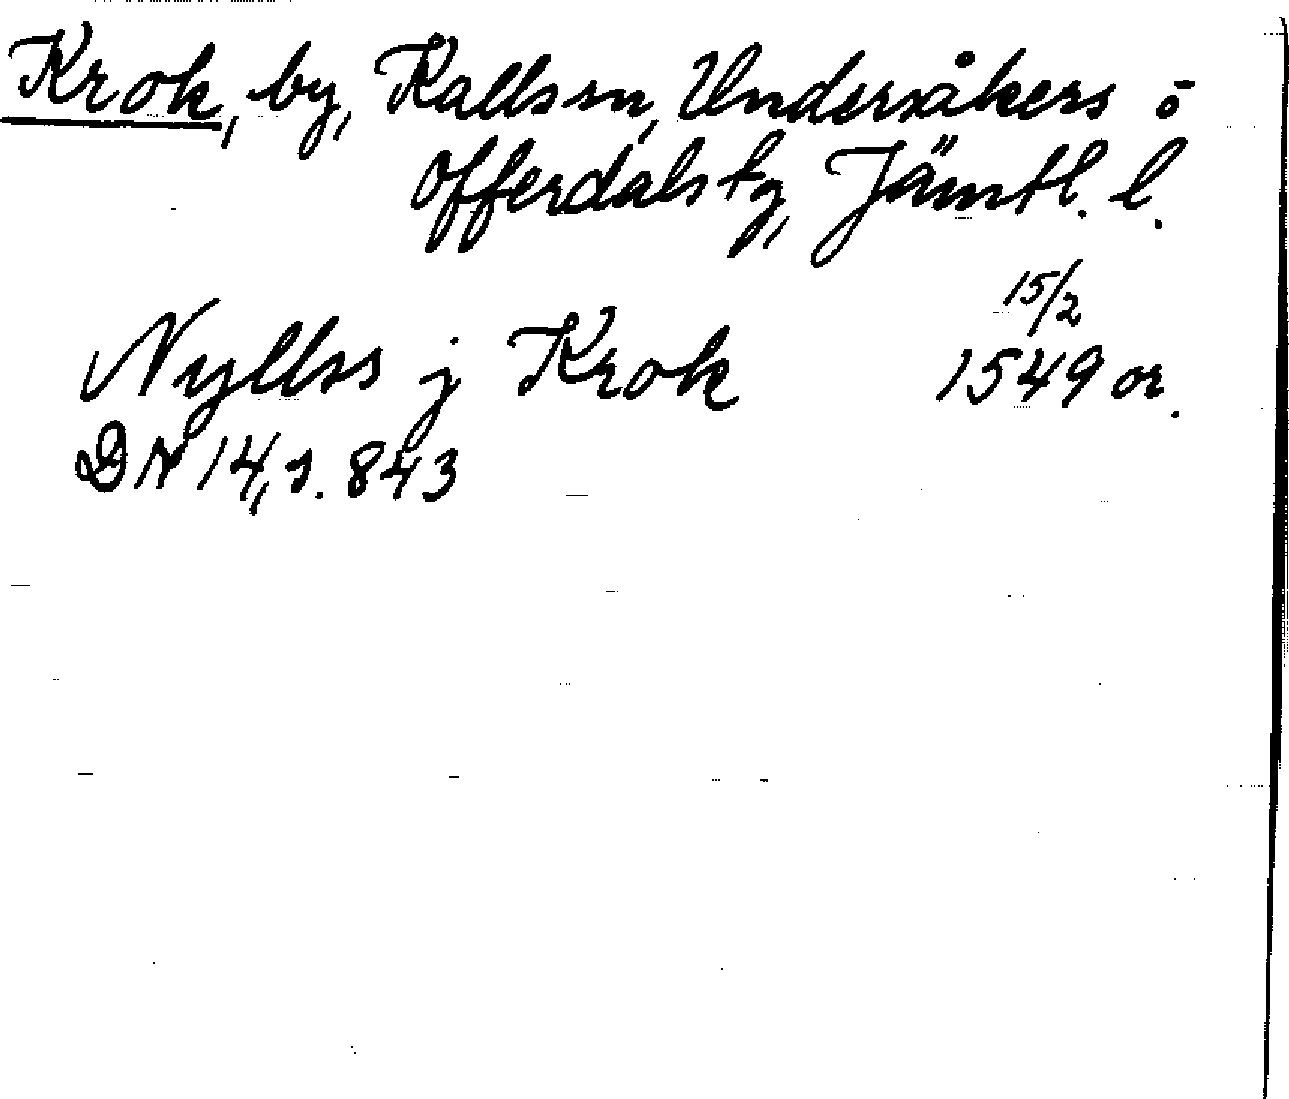 Krok, by, Kalls sn, Undersåkers o
Offerdals tg, Jämtl. l.
15/2
Nyllss j Krok 1549 or.
DN 14, s. 843